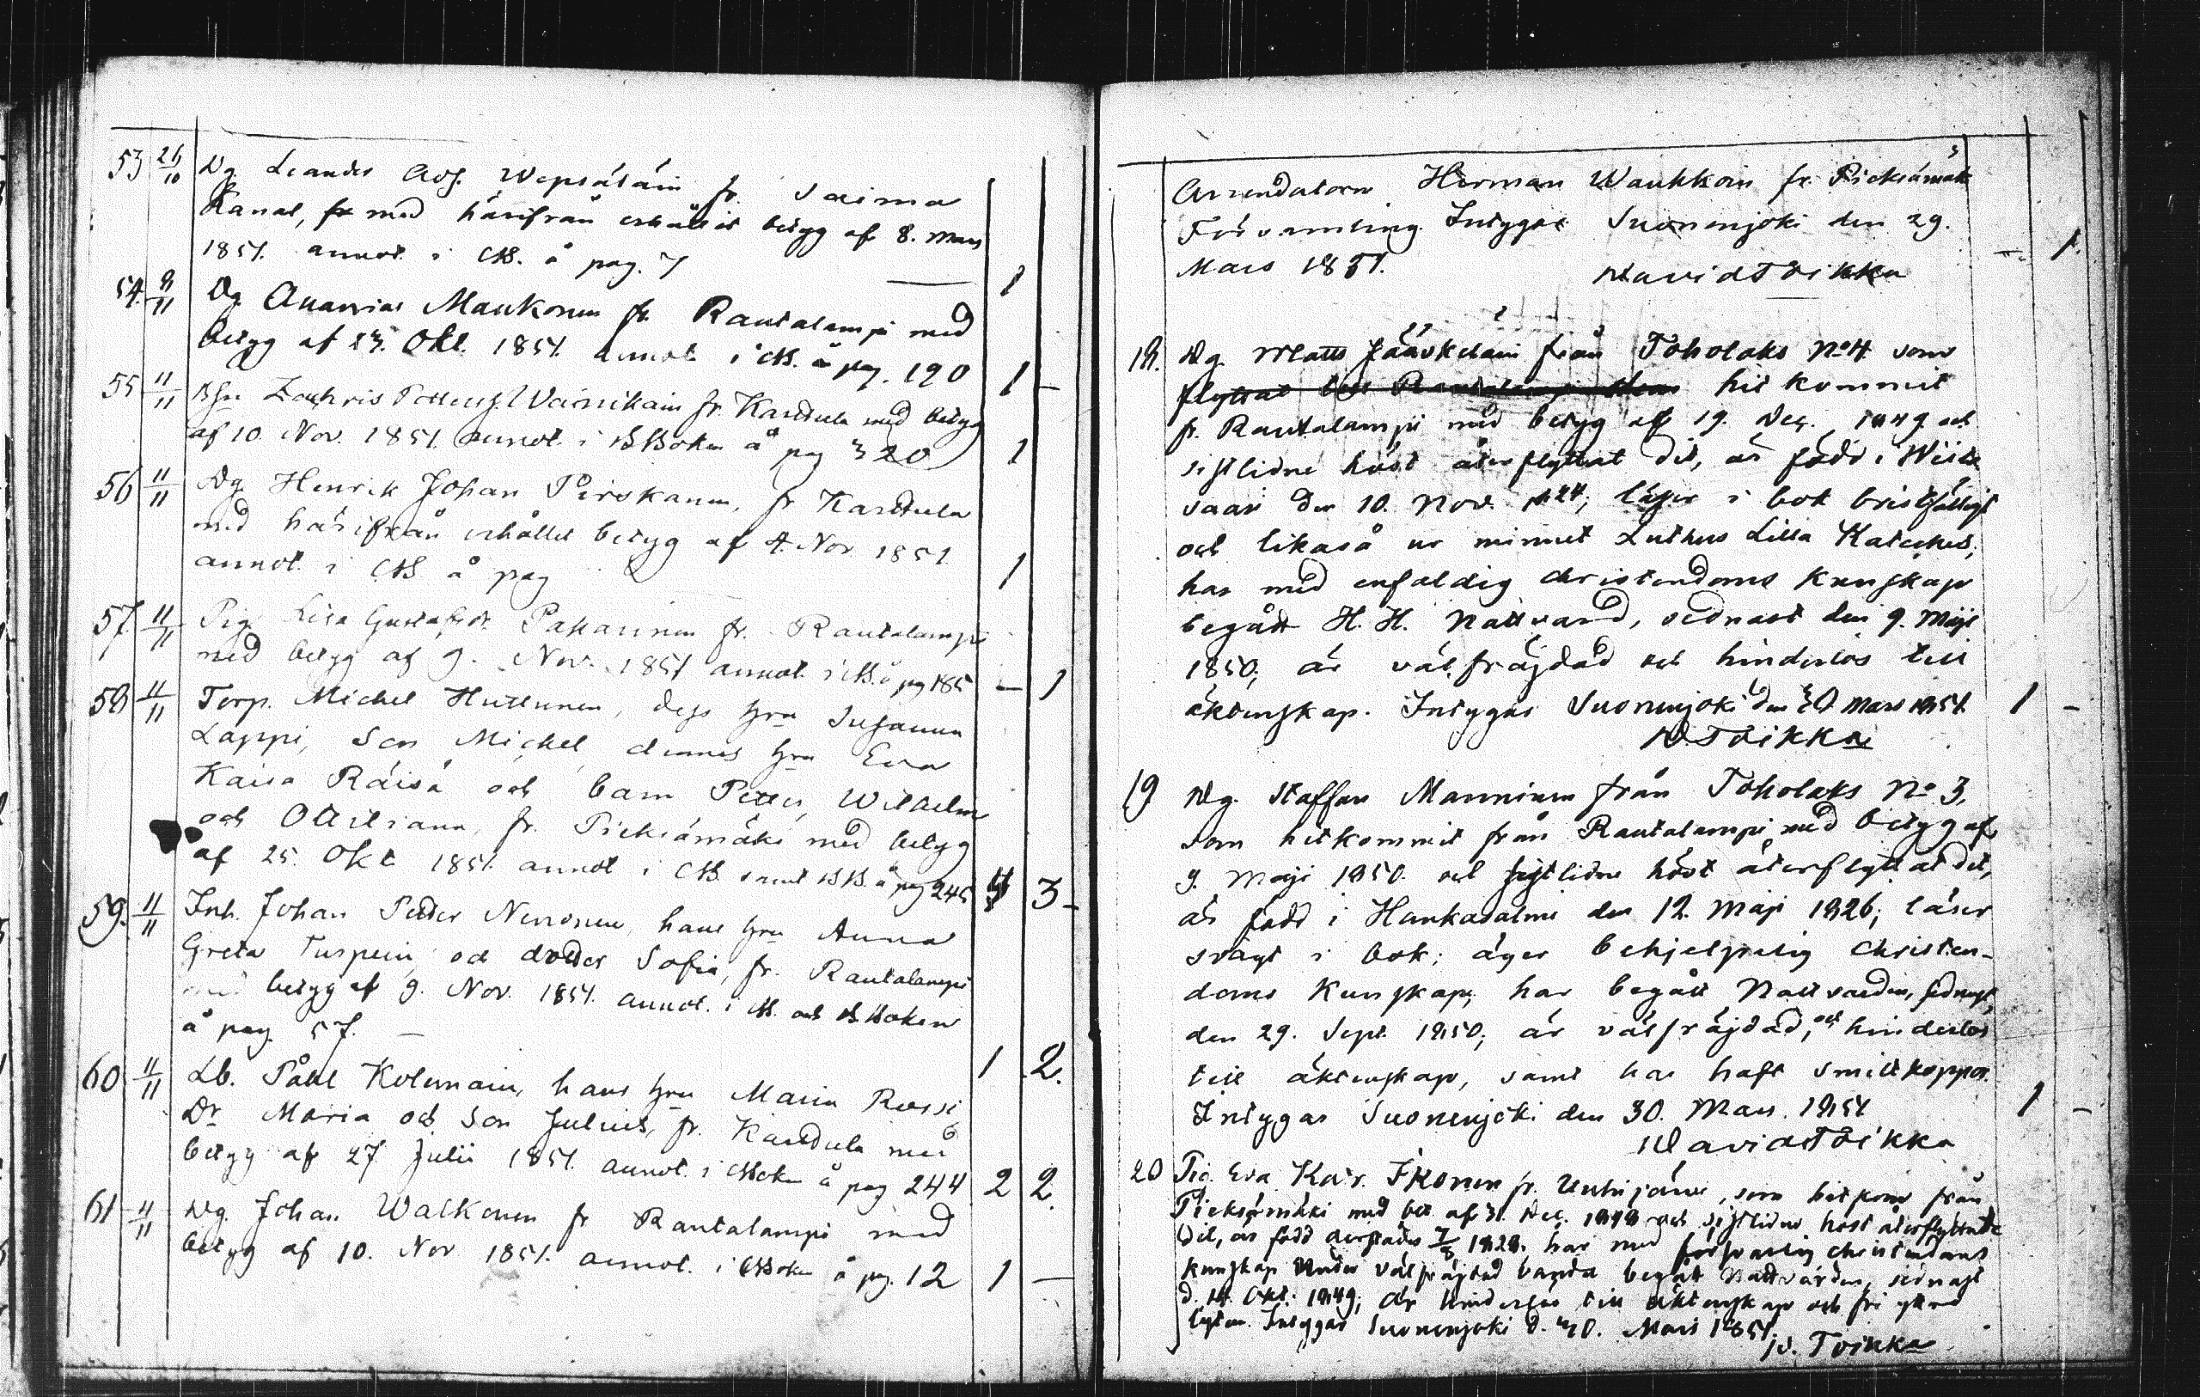 53 26/10 Dg. Leander Adf. Wepsäläin fr. Saima
Kanal, fr med härifrån erhållit betyg af 8. Mars
1851. annot. i CB. å pag. 7 — 1
54 9/11 Dg. Ananias Maukonen fr. Rautalampi med
betyg af 27. Okt. 1851. annot. i CB. å pag. 190 1 —
55 11/11 Zachris Wainikain fr. Karttula med betyg
af 10. Nov. 1851. annot. i BBoken å pag 320 1
56 11/11 Dg. Henrik Johan Pirskanen, fr Karttula
med härifrån erhållet betyg af 4. Nov 1851
annot. i CB. å pag 1
57. 11/11 Pig. Lisa Gustafsdr. Pakarinen fr. Rautalampi
med betyg af 9. Nov. 1851 annot. i CB. å pag 185 — 1
58 11/11 Torp. Michel Huttunen, dess hru Susanna
Lappi, Son Michel, dennes hru Eva
Kaisa Räisä och barn Petter, Wilhelm
och Ottiliana, fr. Pieksämäki med betyg
af 25. Okt 1851. annot i CB. samt BB. å pag 245 3 —
59. 11/11 Inh. Johan Petter Nenonen, hans hru Anna
Greta Turpein och dotter Sofia, fr. Rautalampi
med betyg af 9. Nov. 1851. annot. i CB. och BBoken
å pag. 57. — 1 2.
60 11/11 Lb. Påhl Kolemain, hans hru Maria Rossi
Dr Maria och Son Julius, fr. Karttula med
betyg af 27 Julii 1851. annot. i CBoken å pag 244 2 2.
61 11/11 Dg. Johan Walkonen fr Rautalampi med
betyg af 10. Nov 1851. annot. i CBoken å pag. 12 1 —
Arrendatorn Herman Wauhkoin fr. Pieksämäk
Församling. Intygas Suonenjoki den 29.
Mars 1851. David Toikka — 1.
18. Dg. Matts Jääskeläin från Toholaks No 4 som
flyttat till Rautalampi hit kommit
fr. Rautalampi med betyg af 19. Dec. 1849 och
sistlidne höst återflyttat dit, är född i Wiita
saari den 10. Nov. 1824; läser i bok bristfälligt
och likaså ur minnet Luthers Lilla Kateches;
har med enfaldig christendoms kunskap
begått H. H. Nattvard, sednast den 9. Maji
1850; är välfräjdad och hinderlös till
äktenskap. Intygas Suonenjoki den 30 Mars 1851. 1 —
D. Toikka
19 Dg. Staffan Manninen från Toholaks No 3,
som hitkommit från Rautalampi med betyg af
9. Maji 1850. och sistlidne höst återflyttat dit,
är född i Hankasalmi den 12. Maji 1826; läser
svagt i bok; äger behjelpelig Christen-
doms kunskap; har begått Nattvarden, sednast
den 29. Sept. 1850; är välfräjdad, och hinderlös
till äktenskap, samt har haft smittkoppor.
Intygas Suonenjoki den 30. Mars. 1851 1 —
David Toikka
20 Pig. Eva Kar. Ikonen fr. Vehvijärvi, som hitkom från
Pieksämäki med bet. af 31. Dec. 1848 och sistlidne höst återflyttade
dit, är född derstädes 7/8 1828; har med försvarlig christendoms
kunskap under välfräjdad vandel begått Nattvarden, sednast
d. 14. Okt. 1849; är hinderlös till äktenskap och fri
lyten. Intygas Suonenjoki d. 30. Mars 1851.
D. Toikka